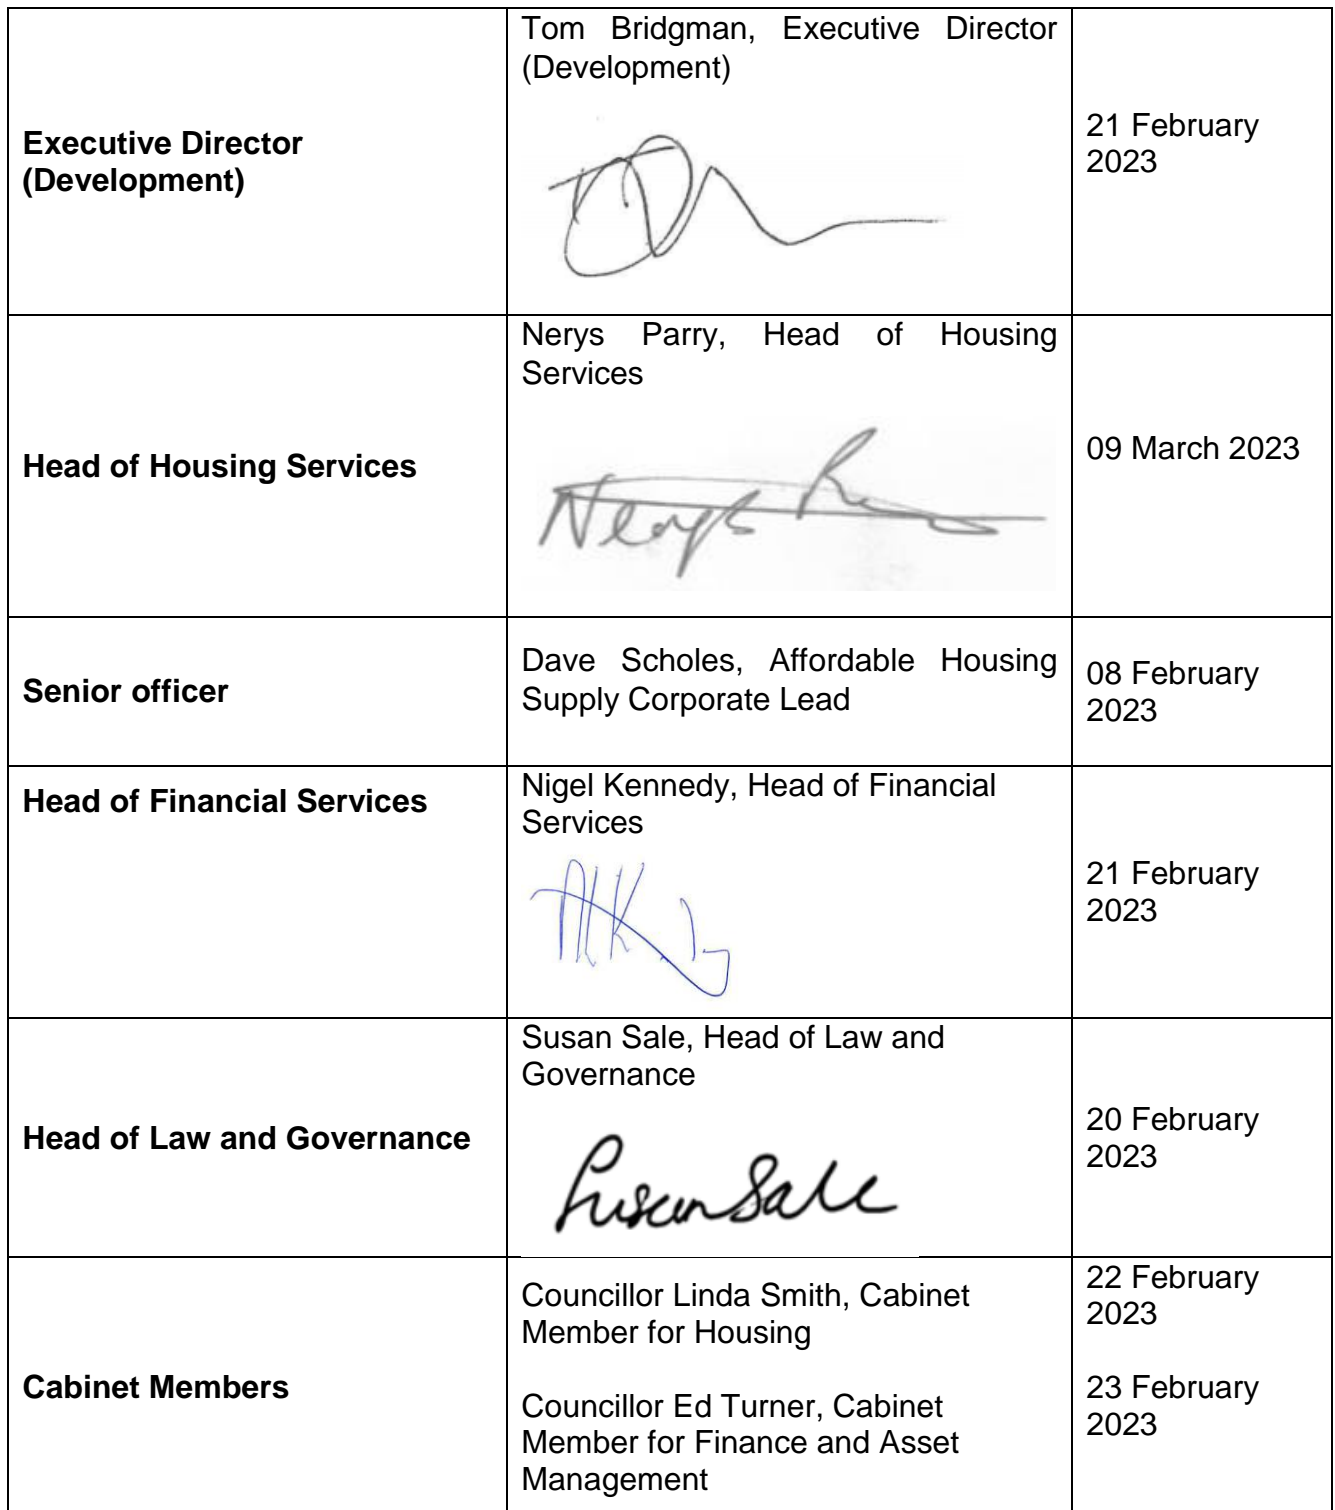 Executive Director
(Development)
Tom Bridgman, Executive Director
(Development)
21 February
2023
Head of Housing Services
Nerys Parry, Head of Housing
Services
Nerys
09 March 2023
Senior officer
Dave Scholes, Affordable Housing
Supply Corporate Lead
08 February
2023
Head of Financial Services
Nigel Kennedy, Head of Financial
Services
21 February
2023
Head of Law and Governance
Susan Sale, Head of Law and
Governance
Susan Sale
20 February
2023
Cabinet Members
Councillor Linda Smith, Cabinet
Member for Housing
22 February
2023
Councillor Ed Turner, Cabinet
Member for Finance and Asset
Management
23 February
2023